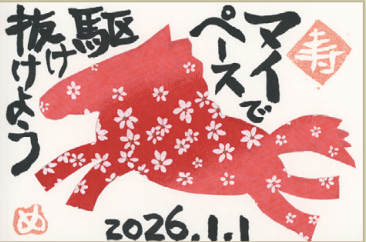 マイ
ペースで
駆け
抜けよう
寿
2026.1.1
め